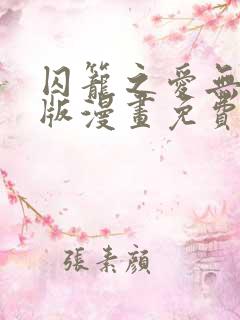 囚籠之愛無
版漫畫免費
張素顏